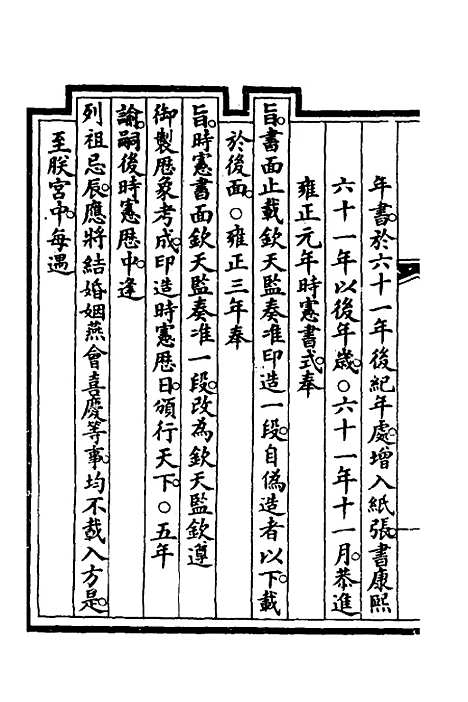 年書於六十一年後紀年處增入紙張書康熙
六十一年以後年歲○六十一年十一月恭進
雍正元年時憲書式奉
旨書面止載欽天監奏准印造一段自偽造者以下載
於後面○雍正三年奉
旨時憲書面欽天監奏准一段改為欽天監欽遵
御製歷象考成印造時憲歷日頒行天下○五年
諭嗣後時憲歷中逢
列祖忌辰應將結婚姻燕會喜慶等事均不載入方是
至朕宮中每遇